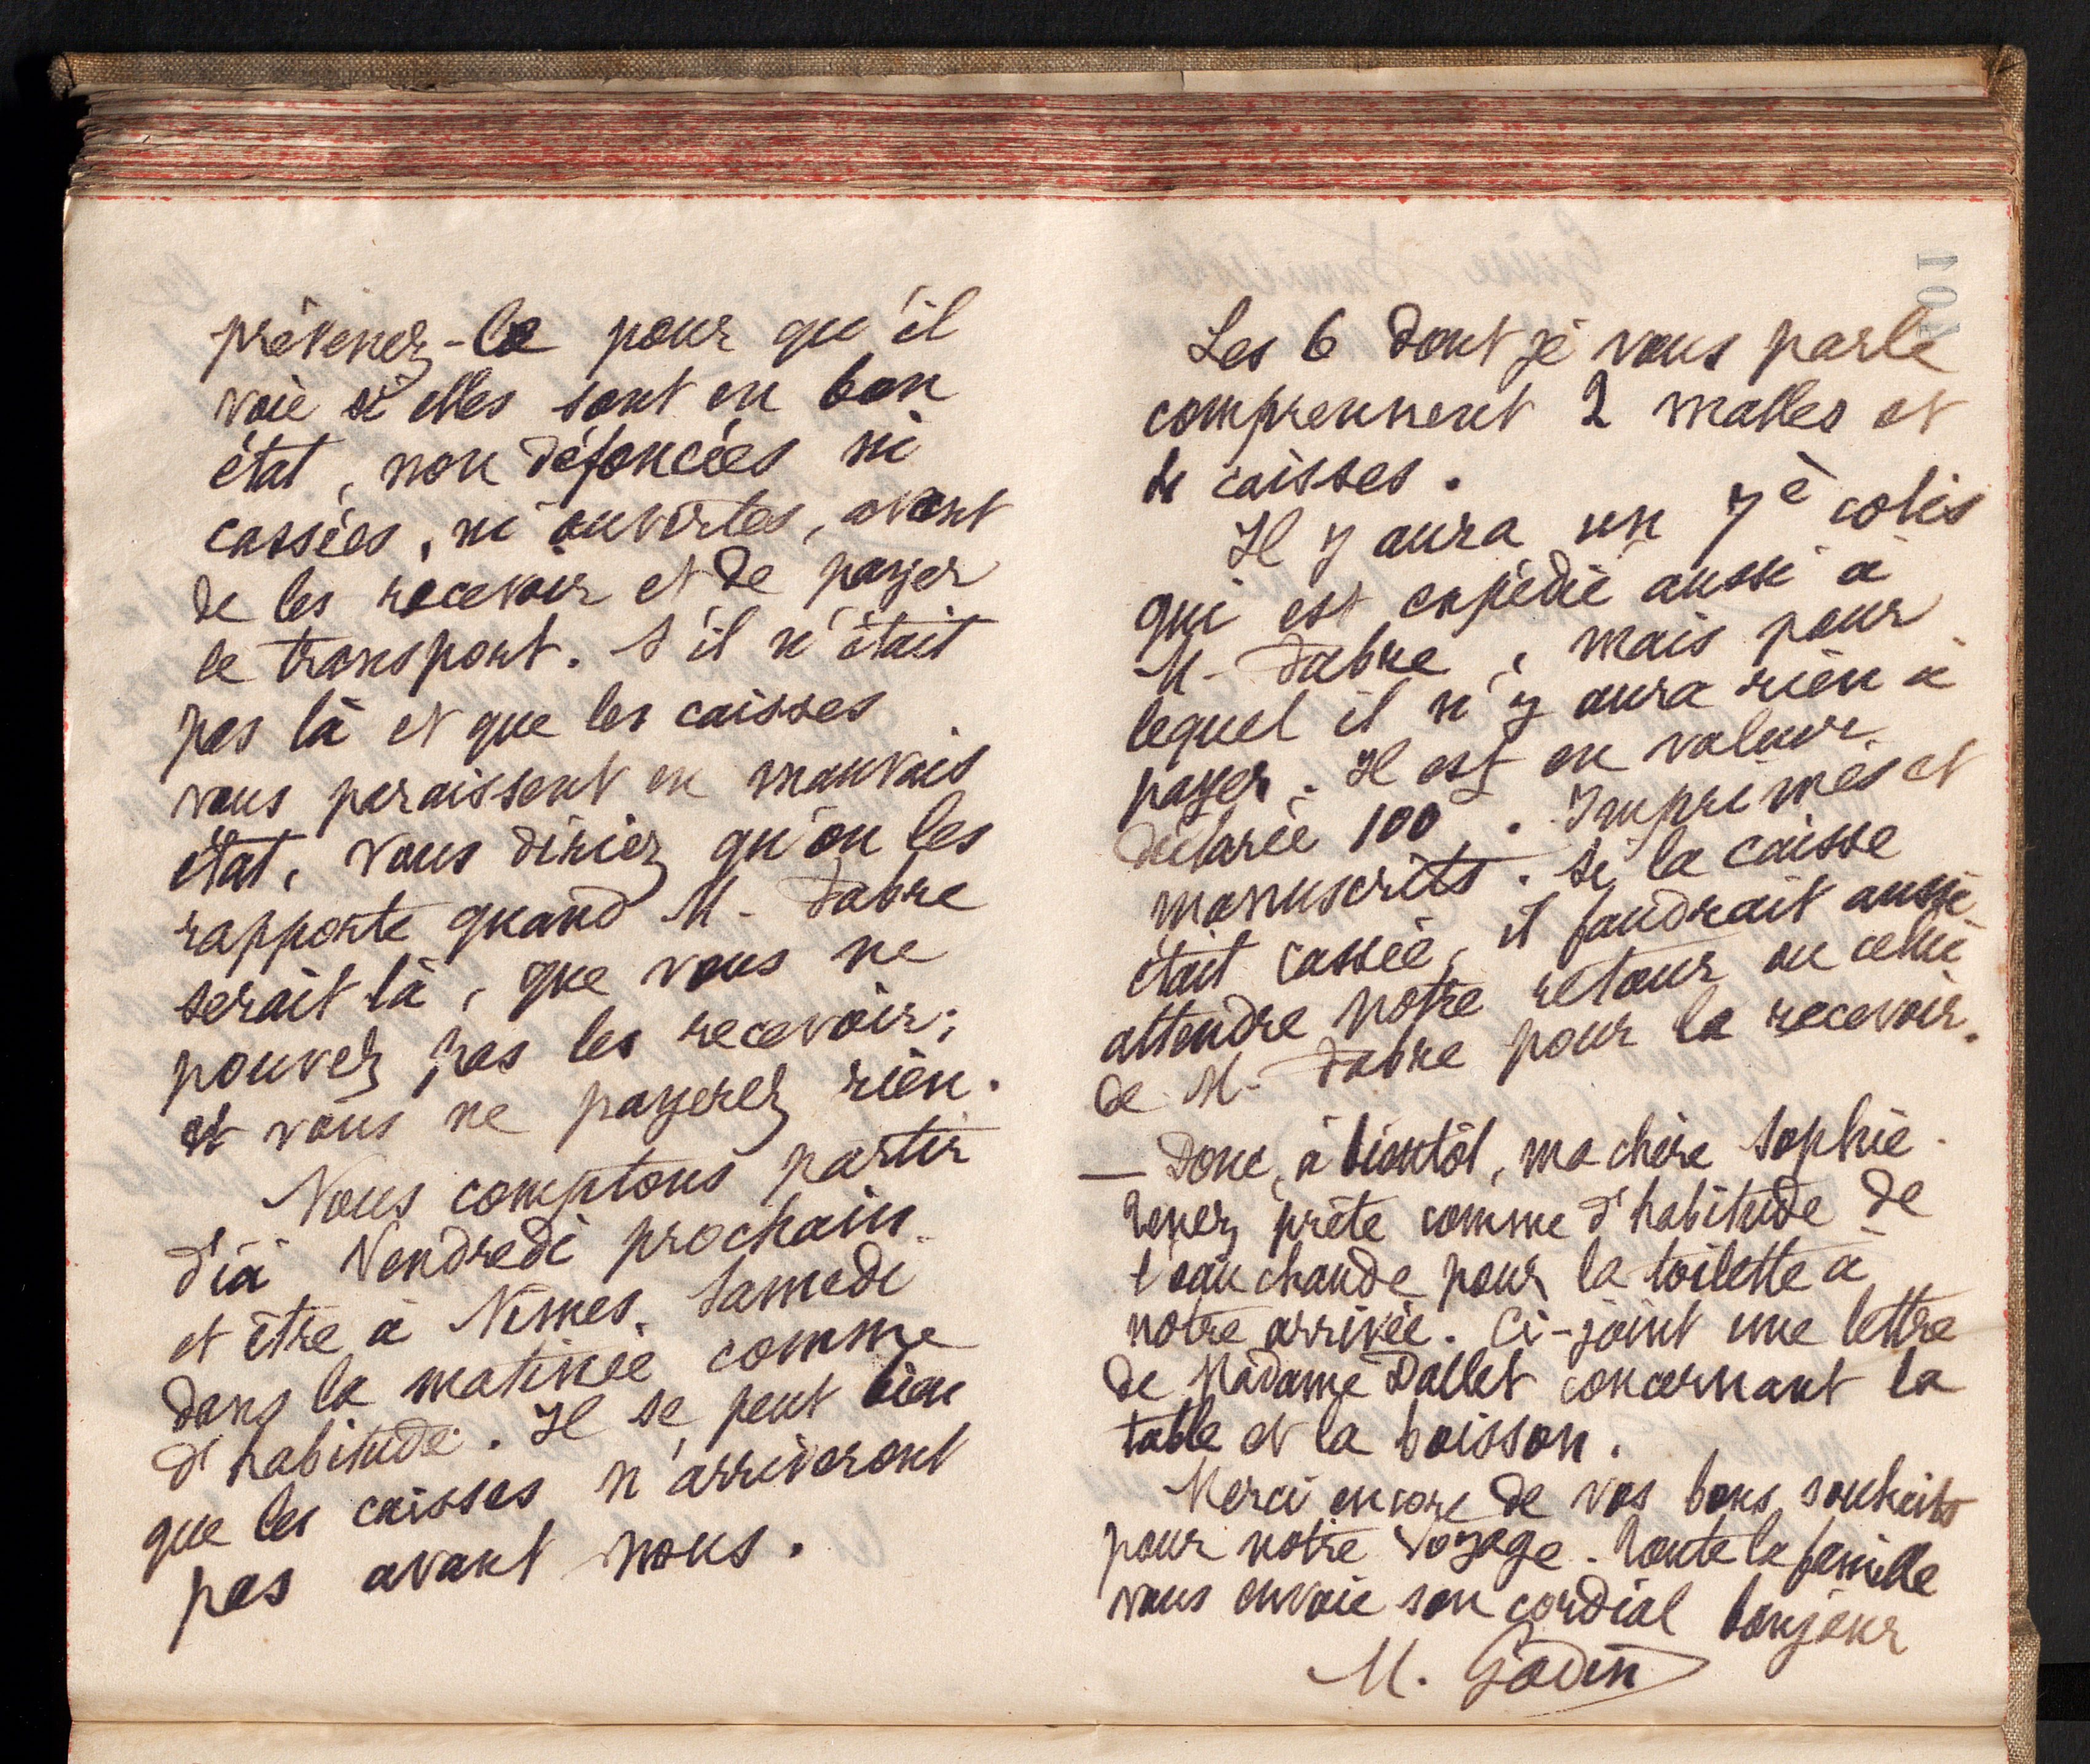 prévenez-le pour qu'il
voie si elles sont en bon
état, non défoncées ni
cassées, ni ouvertes, avant
de les recevoir et de payer
le transport. S'il n'était
pas là et que les caisses
vous paraissent en mauvais
état, vous diriez qu'on les
rapporte quand M. Fabre
serait là, que vous ne
pouvez pas les recevoir;
et vous ne payerez rien.
Nous comptons partir
d'ici Vendredi prochain
et être à Nîmes, Samedi
dans la matinée comme
d'habitude. Il se peut bien
que les caisses n'arriveront
pas avant nous.
101
Les 6 dont je vous parle
comprennent 2 malles et
4 caisses.
Il y aura un 7e colis
qui est expédié aussi à
M. Fabre, mais pour
lequel il n'y aura rien à
payer. Il est en valeur
déclarée 100f. Imprimés et
manuscrits. Si la caisse
était cassée, il faudrait aussi
attendre notre retour ou celui
de M. Fabre pour la recevoir.
— Donc, à bientôt, ma chère Sophie.
Tenez prête comme d'habitude de
l'eau chaude pour la toilette à
notre arrivée. Ci-joint une lettre
de Madame Dallet concernant la
table et la boisson.
Merci encore de vos bons souhaits
pour notre voyage. Toute la famille
vous envoie son cordial bonjour
M. Godin